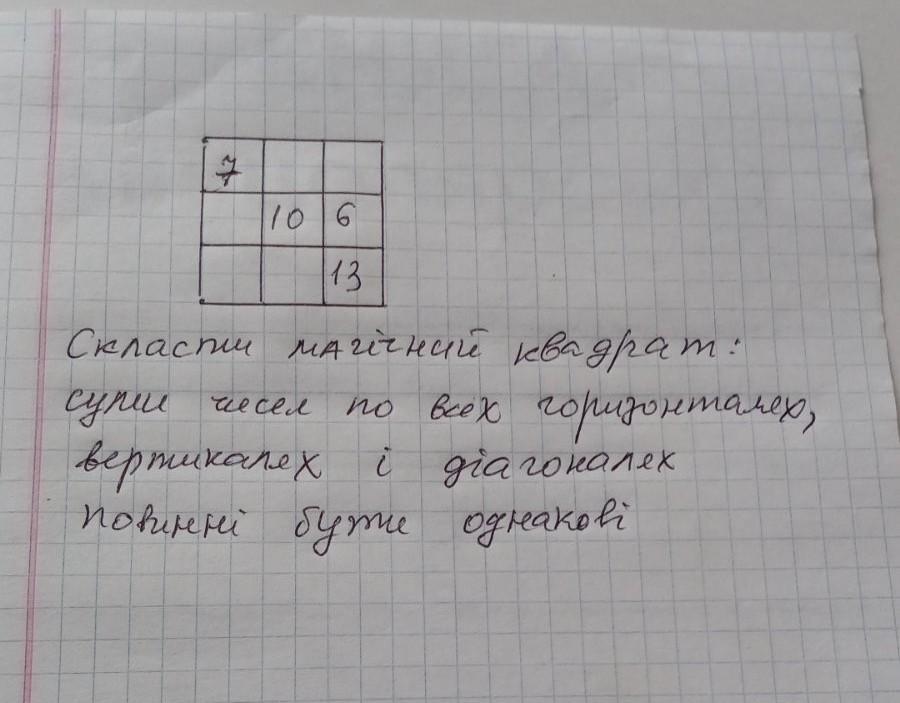 7
10 6
13
Скласти магічний квадрат:
суми чисел по всех горизонталех,
вертикалех і діагоналех
повинні бути однакові